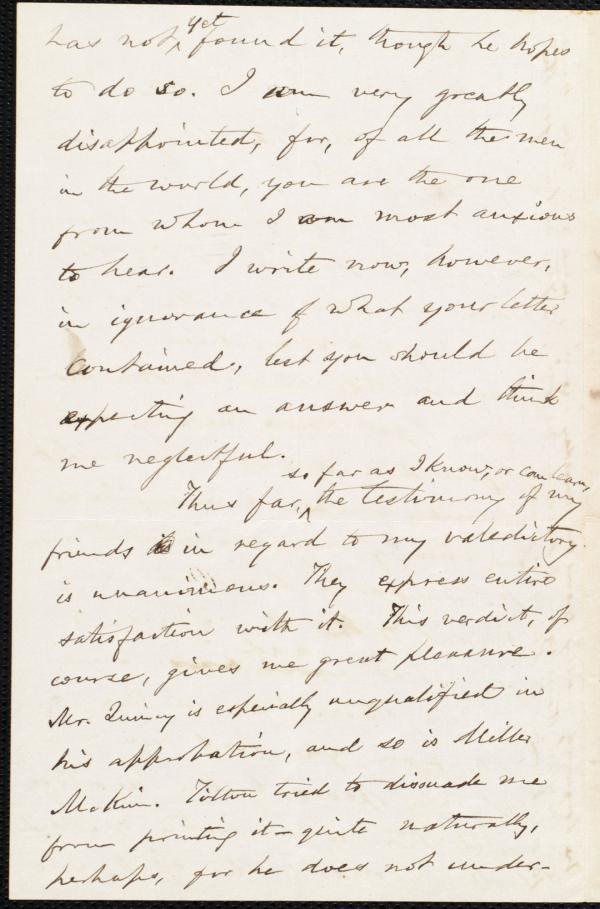 yet
has not, found it, though he hopes
to do so. I am very greatly
disappointed, for, of all the men
in the world, you are the one
from whom I am most anxious
to hear. I write now, however,
in ignorance of what your letter
contained, lest you should be
expecting an answer and think
me neglectful.
so far as I know, or can learn,
Thus far, the testimony of my
friends in regard to my valedictory
is unanimous. They express entire
satisfaction with it. This verdict, of
course, gives me great pleasure.
Mr. Quincy is especially unqualified in
his approbation, and so is Miller
McKim. Tilton tried to dissuade me
from printing it – quite naturally,
perhaps, for he does not under-